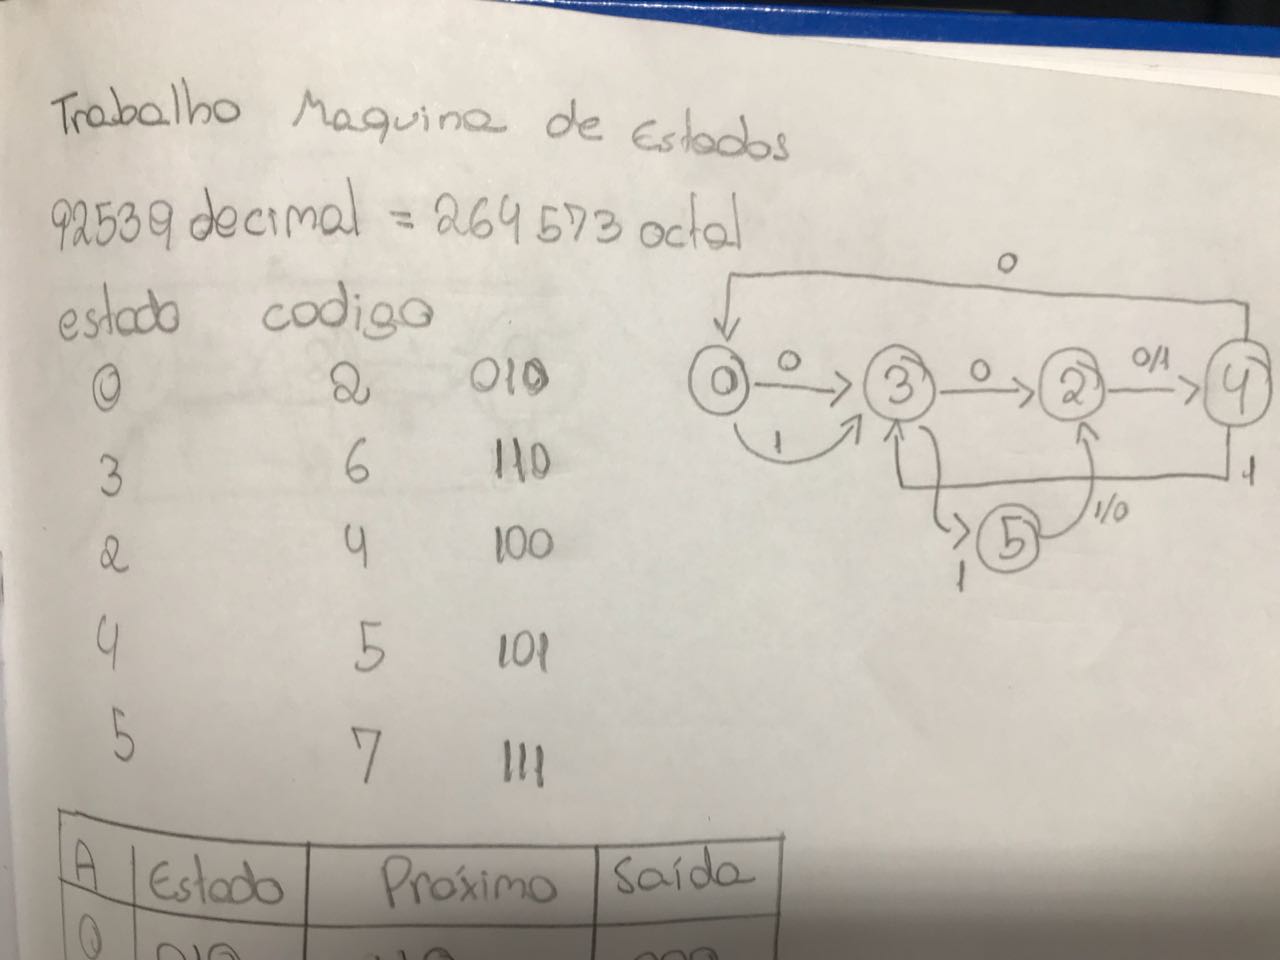 Trabalho Maquina de Estados
92539 decimal = 264573 octal
estado codigo
0 2 010
3 6 110
2 4 100
4 5 101
5 7 111
0
0 0 3 0 2 0/1 4
1
1
5 1/0
1
A Estado Próximo Saída
0 010 110 000